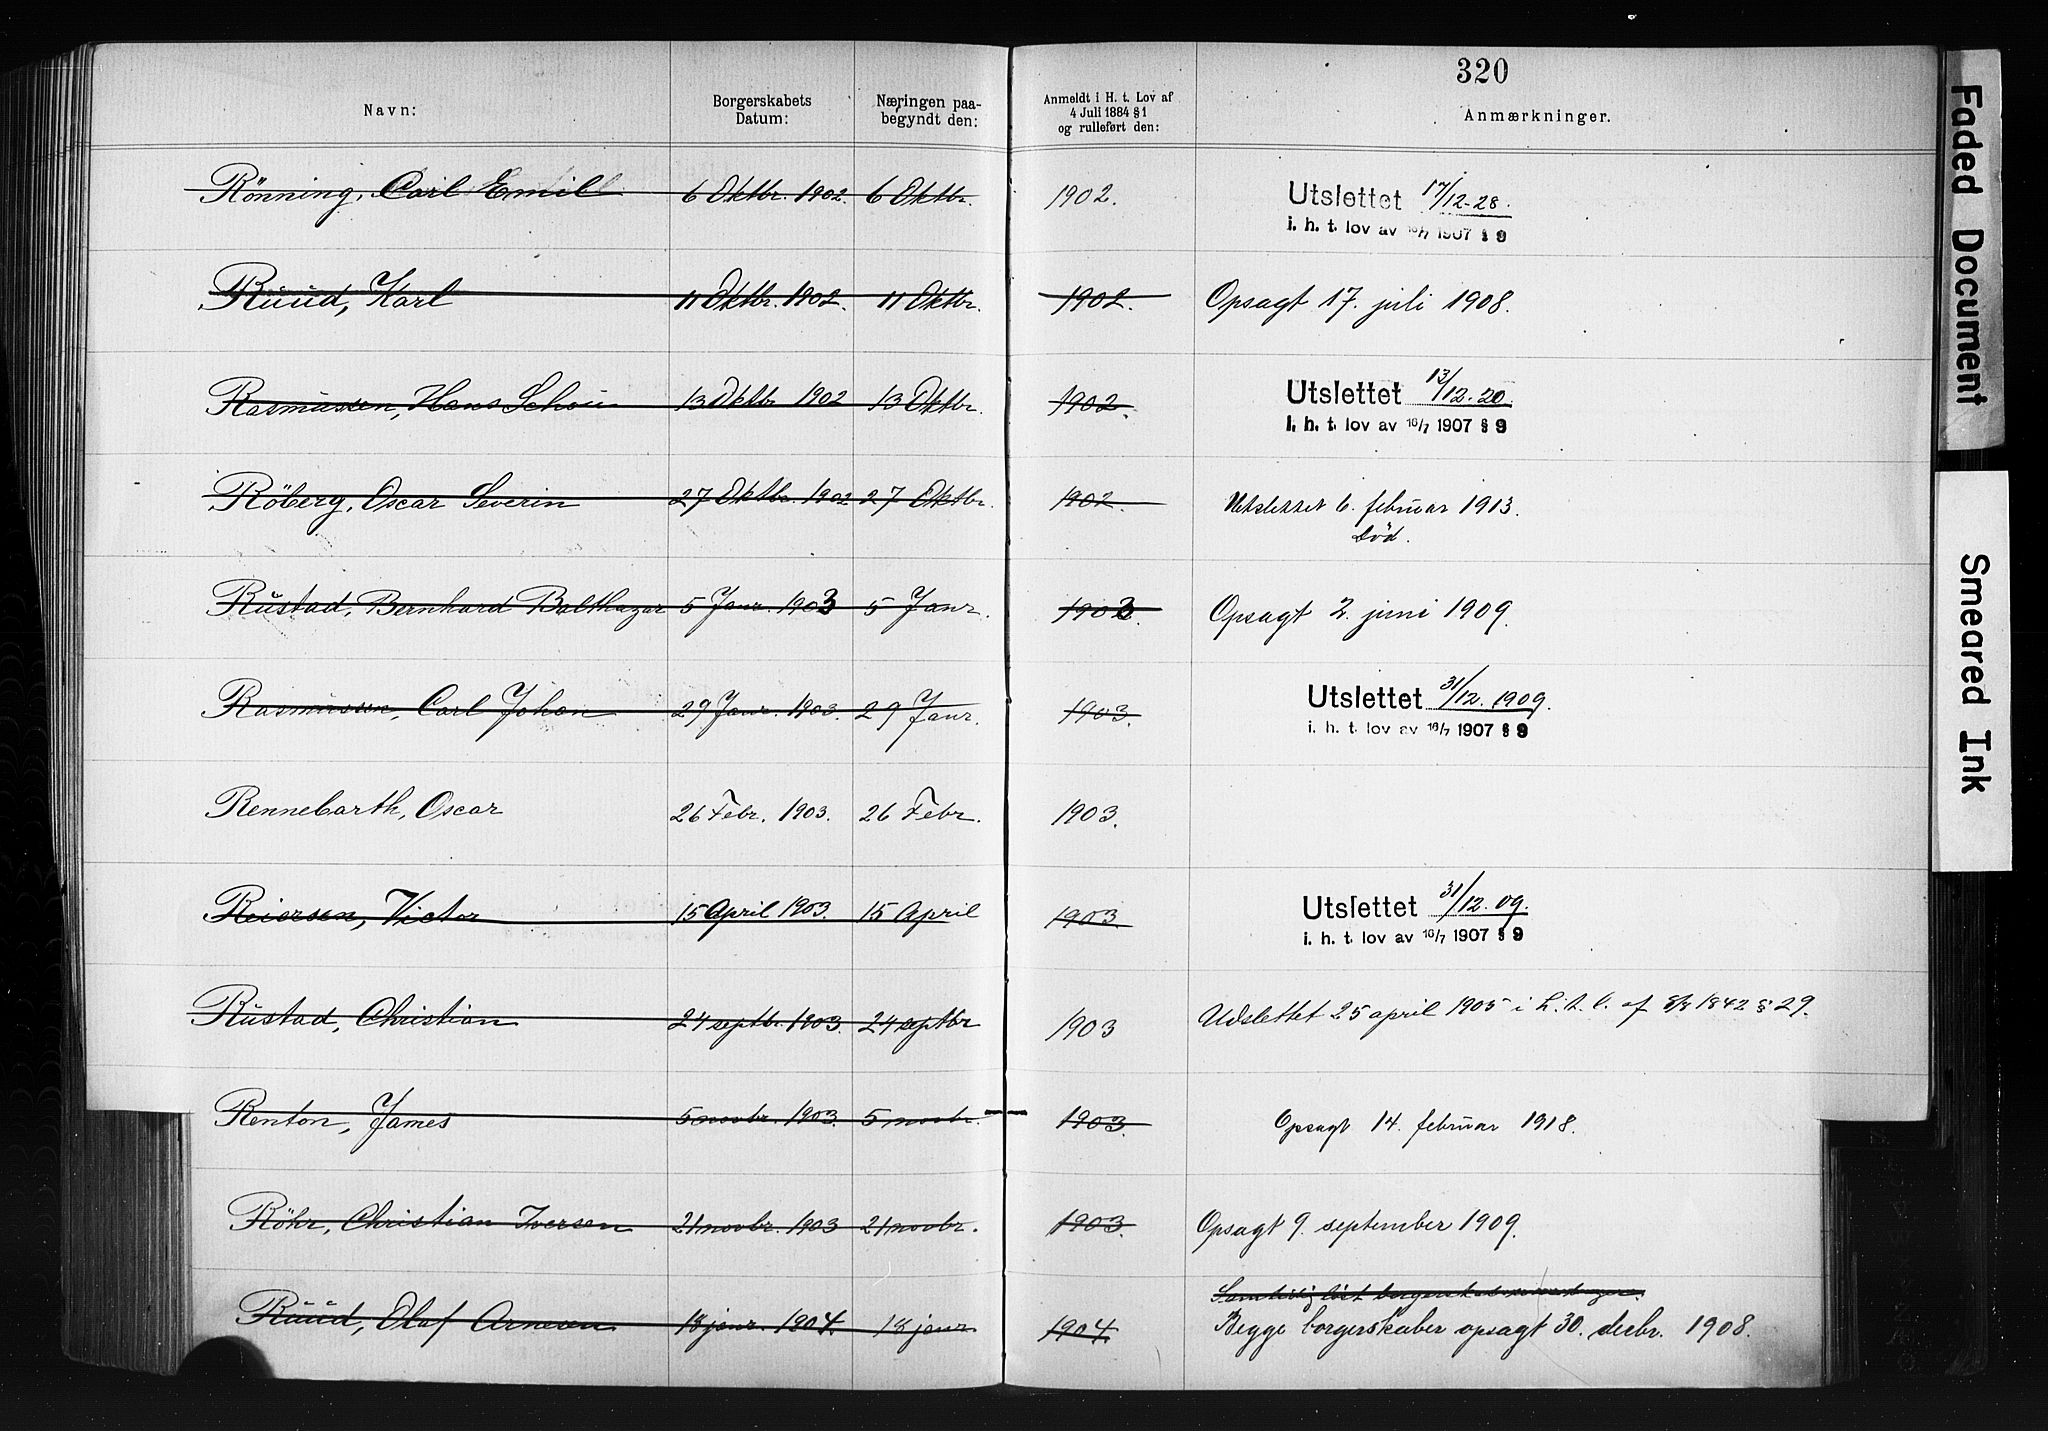 320
Navn:
Borgerskabets Datum:
Næringen paabegyndt den:
Anmeldt i H. t. Lov af 4 Juli 1884 § 1 og rulleført den:
Anmærkninger.
Rönning, Carl Emil 6 Oktbr. 1902. 6 Oktbr. 1902. Utslettet 17/12-28.
i. h. t. lov av 16/7 1907 § 9
Ruud, Karl 11 Oktbr. 1902. 11 Oktbr. 1902. Opsagt 17. juli 1908.
Rasmussen, Hans Schou 13 Oktbr 1902 13 Oktbr. 1902. Utslettet 13/12-20.
i. h. t. lov av 16/7 1907 § 9
Röberg, Oscar Severin 27 Oktbr. 1902 27 Oktbr. 1902. Utslettet 6. februar 1913.
Död.
Rustad, Bernhard Balthazar 5 Janr. 1903 5 Janr. 1903. Opsagt 2. juni 1909.
Rasmussen, Carl Johan 29 Janr. 1903. 29 Janr. 1903. Utslettet 31/12. 1909.
i. h. t. lov av 16/7 1907 § 9
Rennebarth, Oscar 26 Febr. 1903. 26 Febr. 1903.
Reiersen, Victor 15 April 1903. 15 April 1903. Utslettet 31/12. 09.
i. h. t. lov av 16/7 1907 § 9
Rustad, Christian 24 septbr. 1903. 24 septbr 1903 Udslettet 25 april 1905 i h. t. l. af 8/8 1842 § 29.
Renton, James 5 novbr. 1903. 5 novbr. 1903. Opsagt 14. februar 1918.
Röhr, Christian Iversen 21 novbr. 1903 21 novbr. 1903. Opsagt 9. september 1909.
Samtidig löst borgerskab som
Ruud, Olaf Arnesen 18 janr. 1904. 18 janr 1904 Begge borgerskaber opsagt 30. decbr. 1908.
Faded Document
Smeared Ink